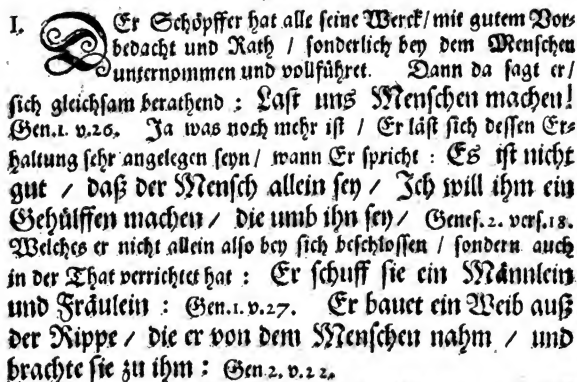 I. DEr Schöpffer hat alle seine Werck/ mit gutem Vor-
bedacht und Rath / sonderlich bey dem Menschen
unternommen und vollführet. Dann da sagt er/
sich gleichsam berathend : Last uns Menschen machen!
Gen.1. v.26. Ja was noch mehr ist / Er läst sich dessen Er-
haltung sehr angelegen seyn/ wann Er spricht : Es ist nicht
gut / daß der Mensch allein sey / Ich will ihm ein
Gehülffen machen / die umb ihn sey / Genes.2. vers.18.
Welches er nicht allein also bey sich beschlossen / sondern auch
in der That verrichtet hat : Er schuff sie ein Männlein
und Fräulein : Gen.1.v.27. Er bauet ein Weib auß
der Rippe / die er von dem Menschen nahm / und
brachte sie zu ihm : Gen 2. v.22.